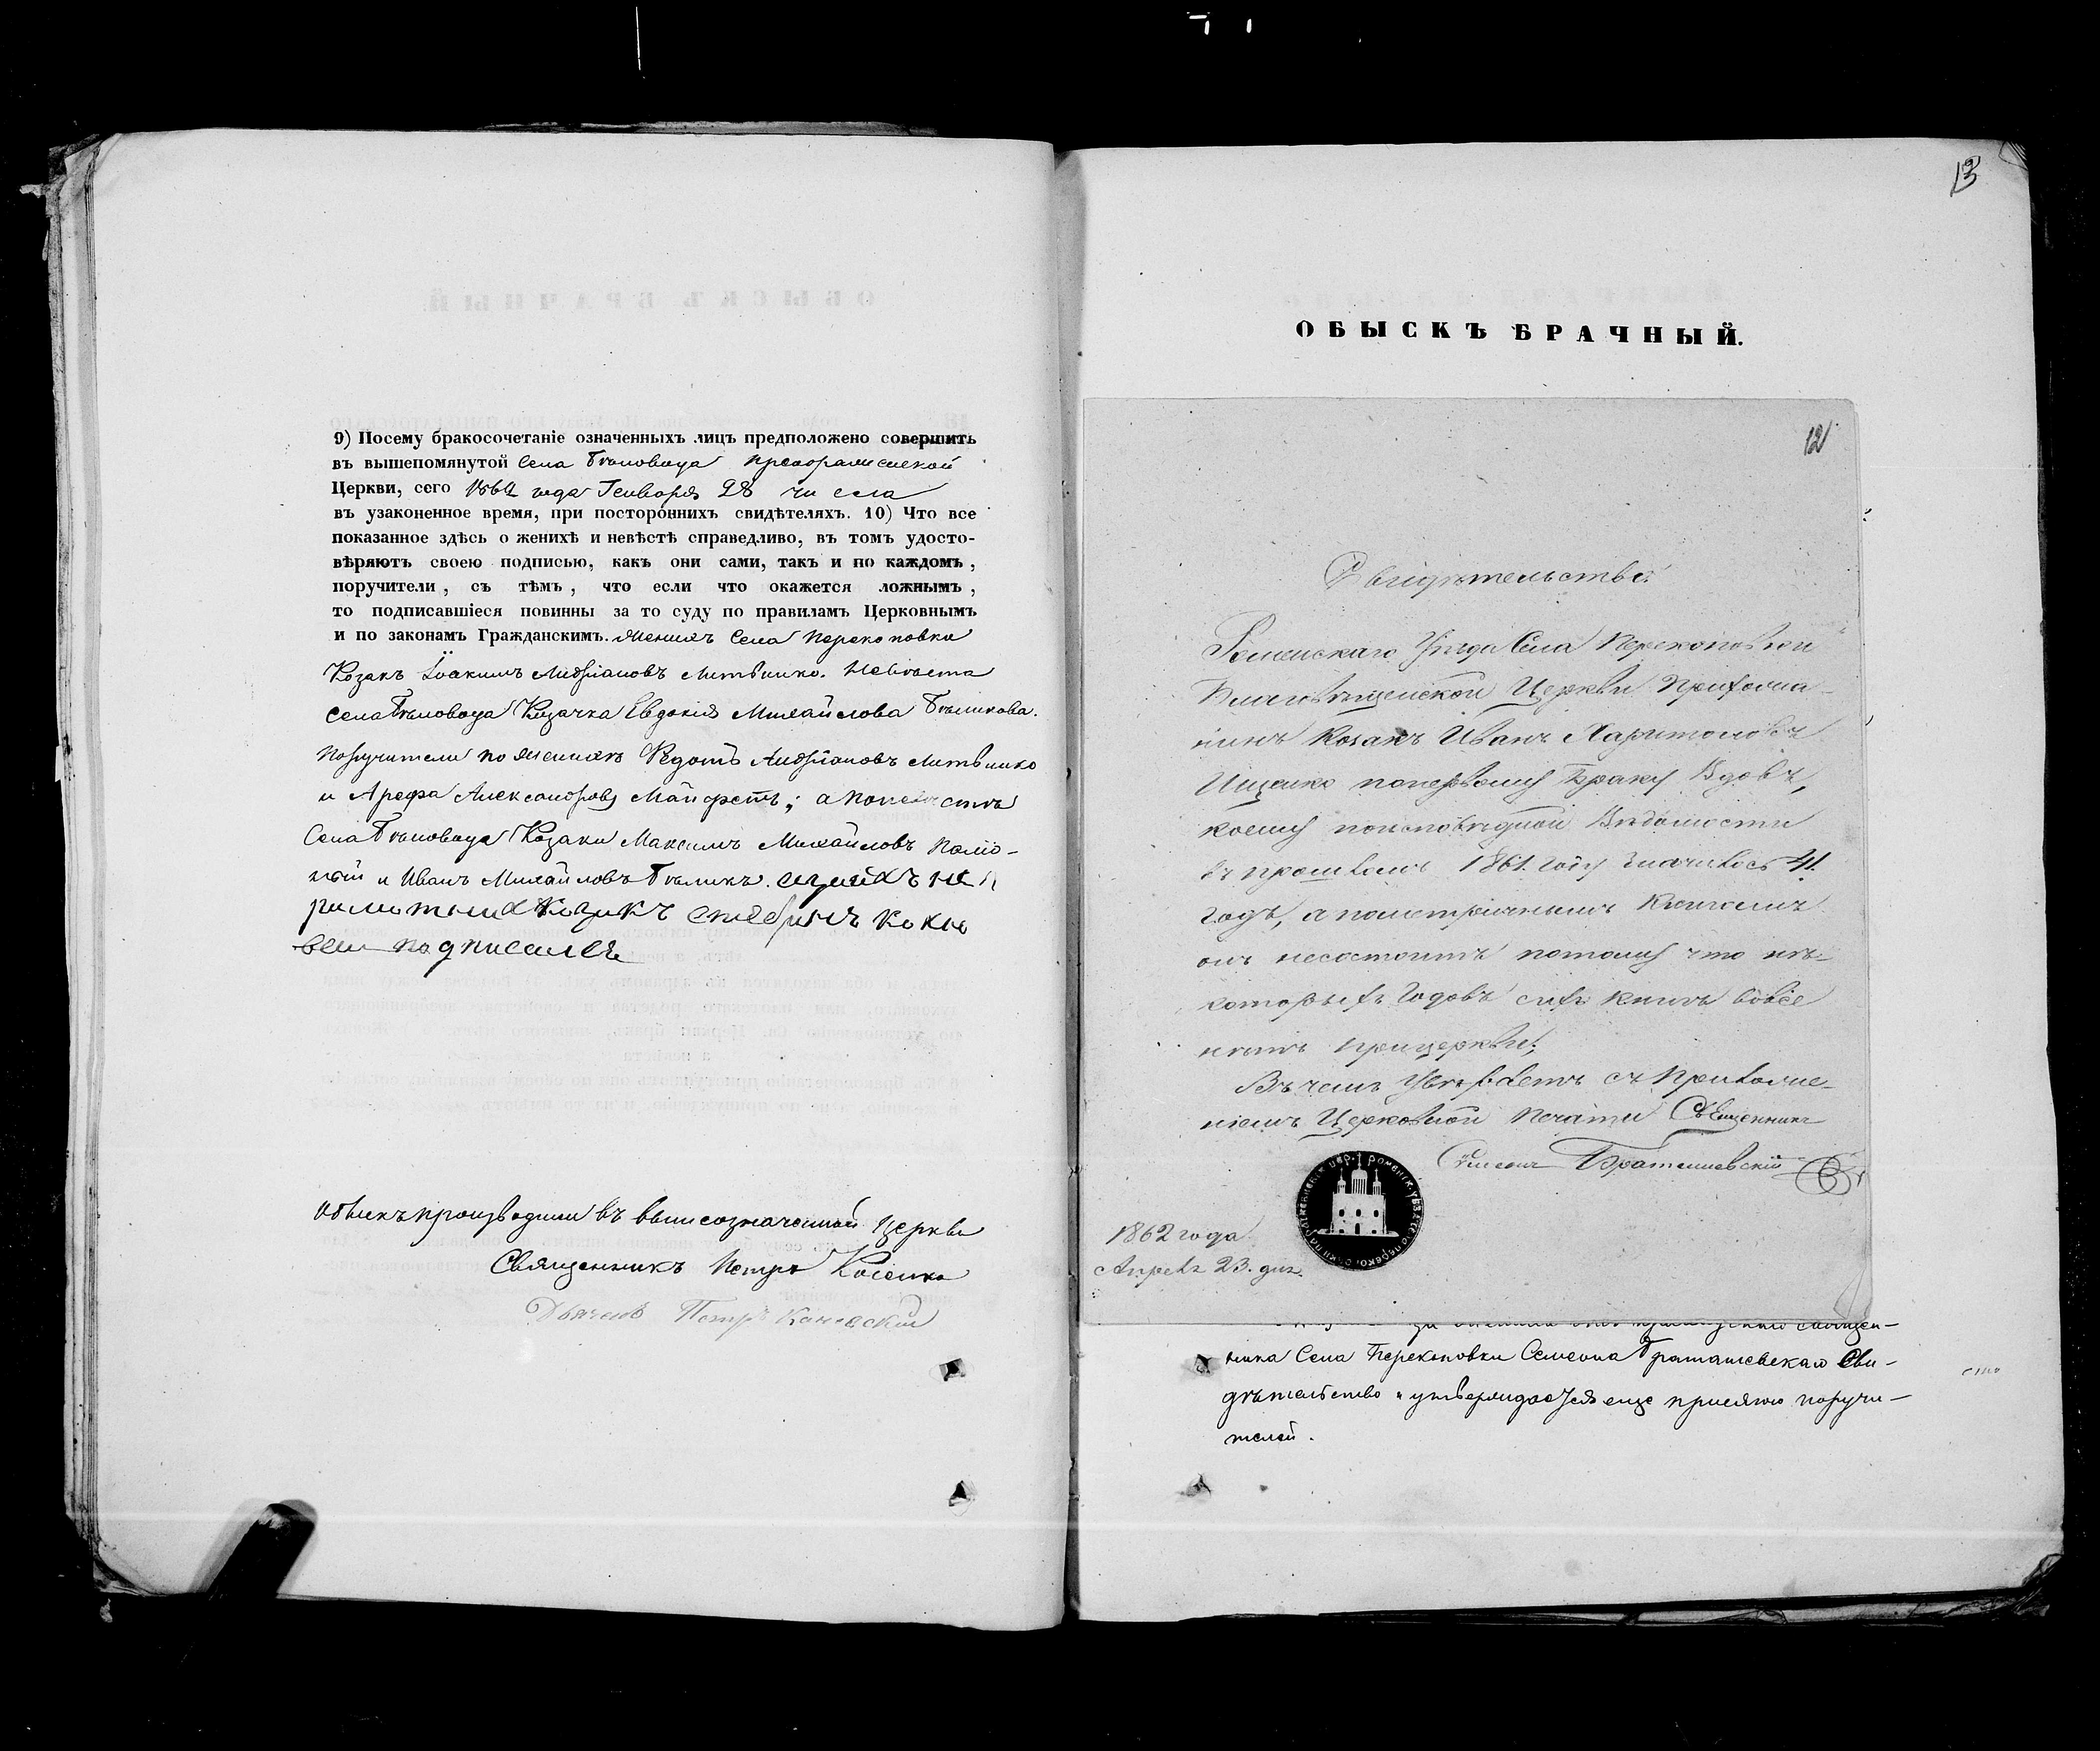 9) Посему бракосочетаніе означенныхъ лицъ предположено совершить
въ вышепомянутой села Бѣловода Преображенской
Церкви, сего 1862 года Генваря 28 числа
въ узаконенное время, при постороннихъ свидѣтеляхъ. 10) Что все
показанное здѣсь о женихѣ и невѣстѣ справедливо, въ томъ удосто-
вѣряютъ своею подписью, какъ они сами, такъ и по каждомъ,
поручители, съ тѣмъ, что если что окажется ложнымъ,
то подписавшіеся повинны за то суду по правиламъ Церковнымъ
и по законамъ Гражданскимъ. Женихъ Села Перекоповки
Козакъ Іоакимъ Андріановъ Литвинко. Невѣста
села Бѣловода Козачка Евдокія Михайлова Бѣликова.
Поручители по женихѣ Ѳедотъ Андріановъ Литвинко
и Арефа Александровъ; а по невѣстѣ
Села Бѣловода Козаки Максимъ Михайловъ
и Иванъ Михайловъ Бѣликъ.
козакъ
подписался
Обыскъ производили въ вышеозначенной Церкви
Священникъ Петръ Косенко
Дьячекъ Петръ Каневскій
13
ОБЫСКЪ БРАЧНЫЙ.
12
Свидѣтельство.
Роменскаго Уѣзда Села Перекоповки
Благовѣщенской Церкви Прихожа-
нинъ Козакъ Иванъ Харитоновъ
Ищенко поперьвому Браку Вдовъ,
коему поисповѣдной Вѣдомости
въ прошломъ 1861. году значилось 41.
годъ, а пометричнымъ Книгамъ
онъ несостоитъ потому что нѣ-
которыхъ Годовъ сихъ книгъ вовсе
нѣтъ прицеркви;
Въ чемъ съ Приложе-
ніемъ Церковной Печати Священникъ
Симеонъ Браташевскій
1862 года
Апрѣля 23. дня.
ника Села Перекоповки Семеона Браташевскаго Сви-
дѣтельство и утверждается еще присягою поручи-
телей.